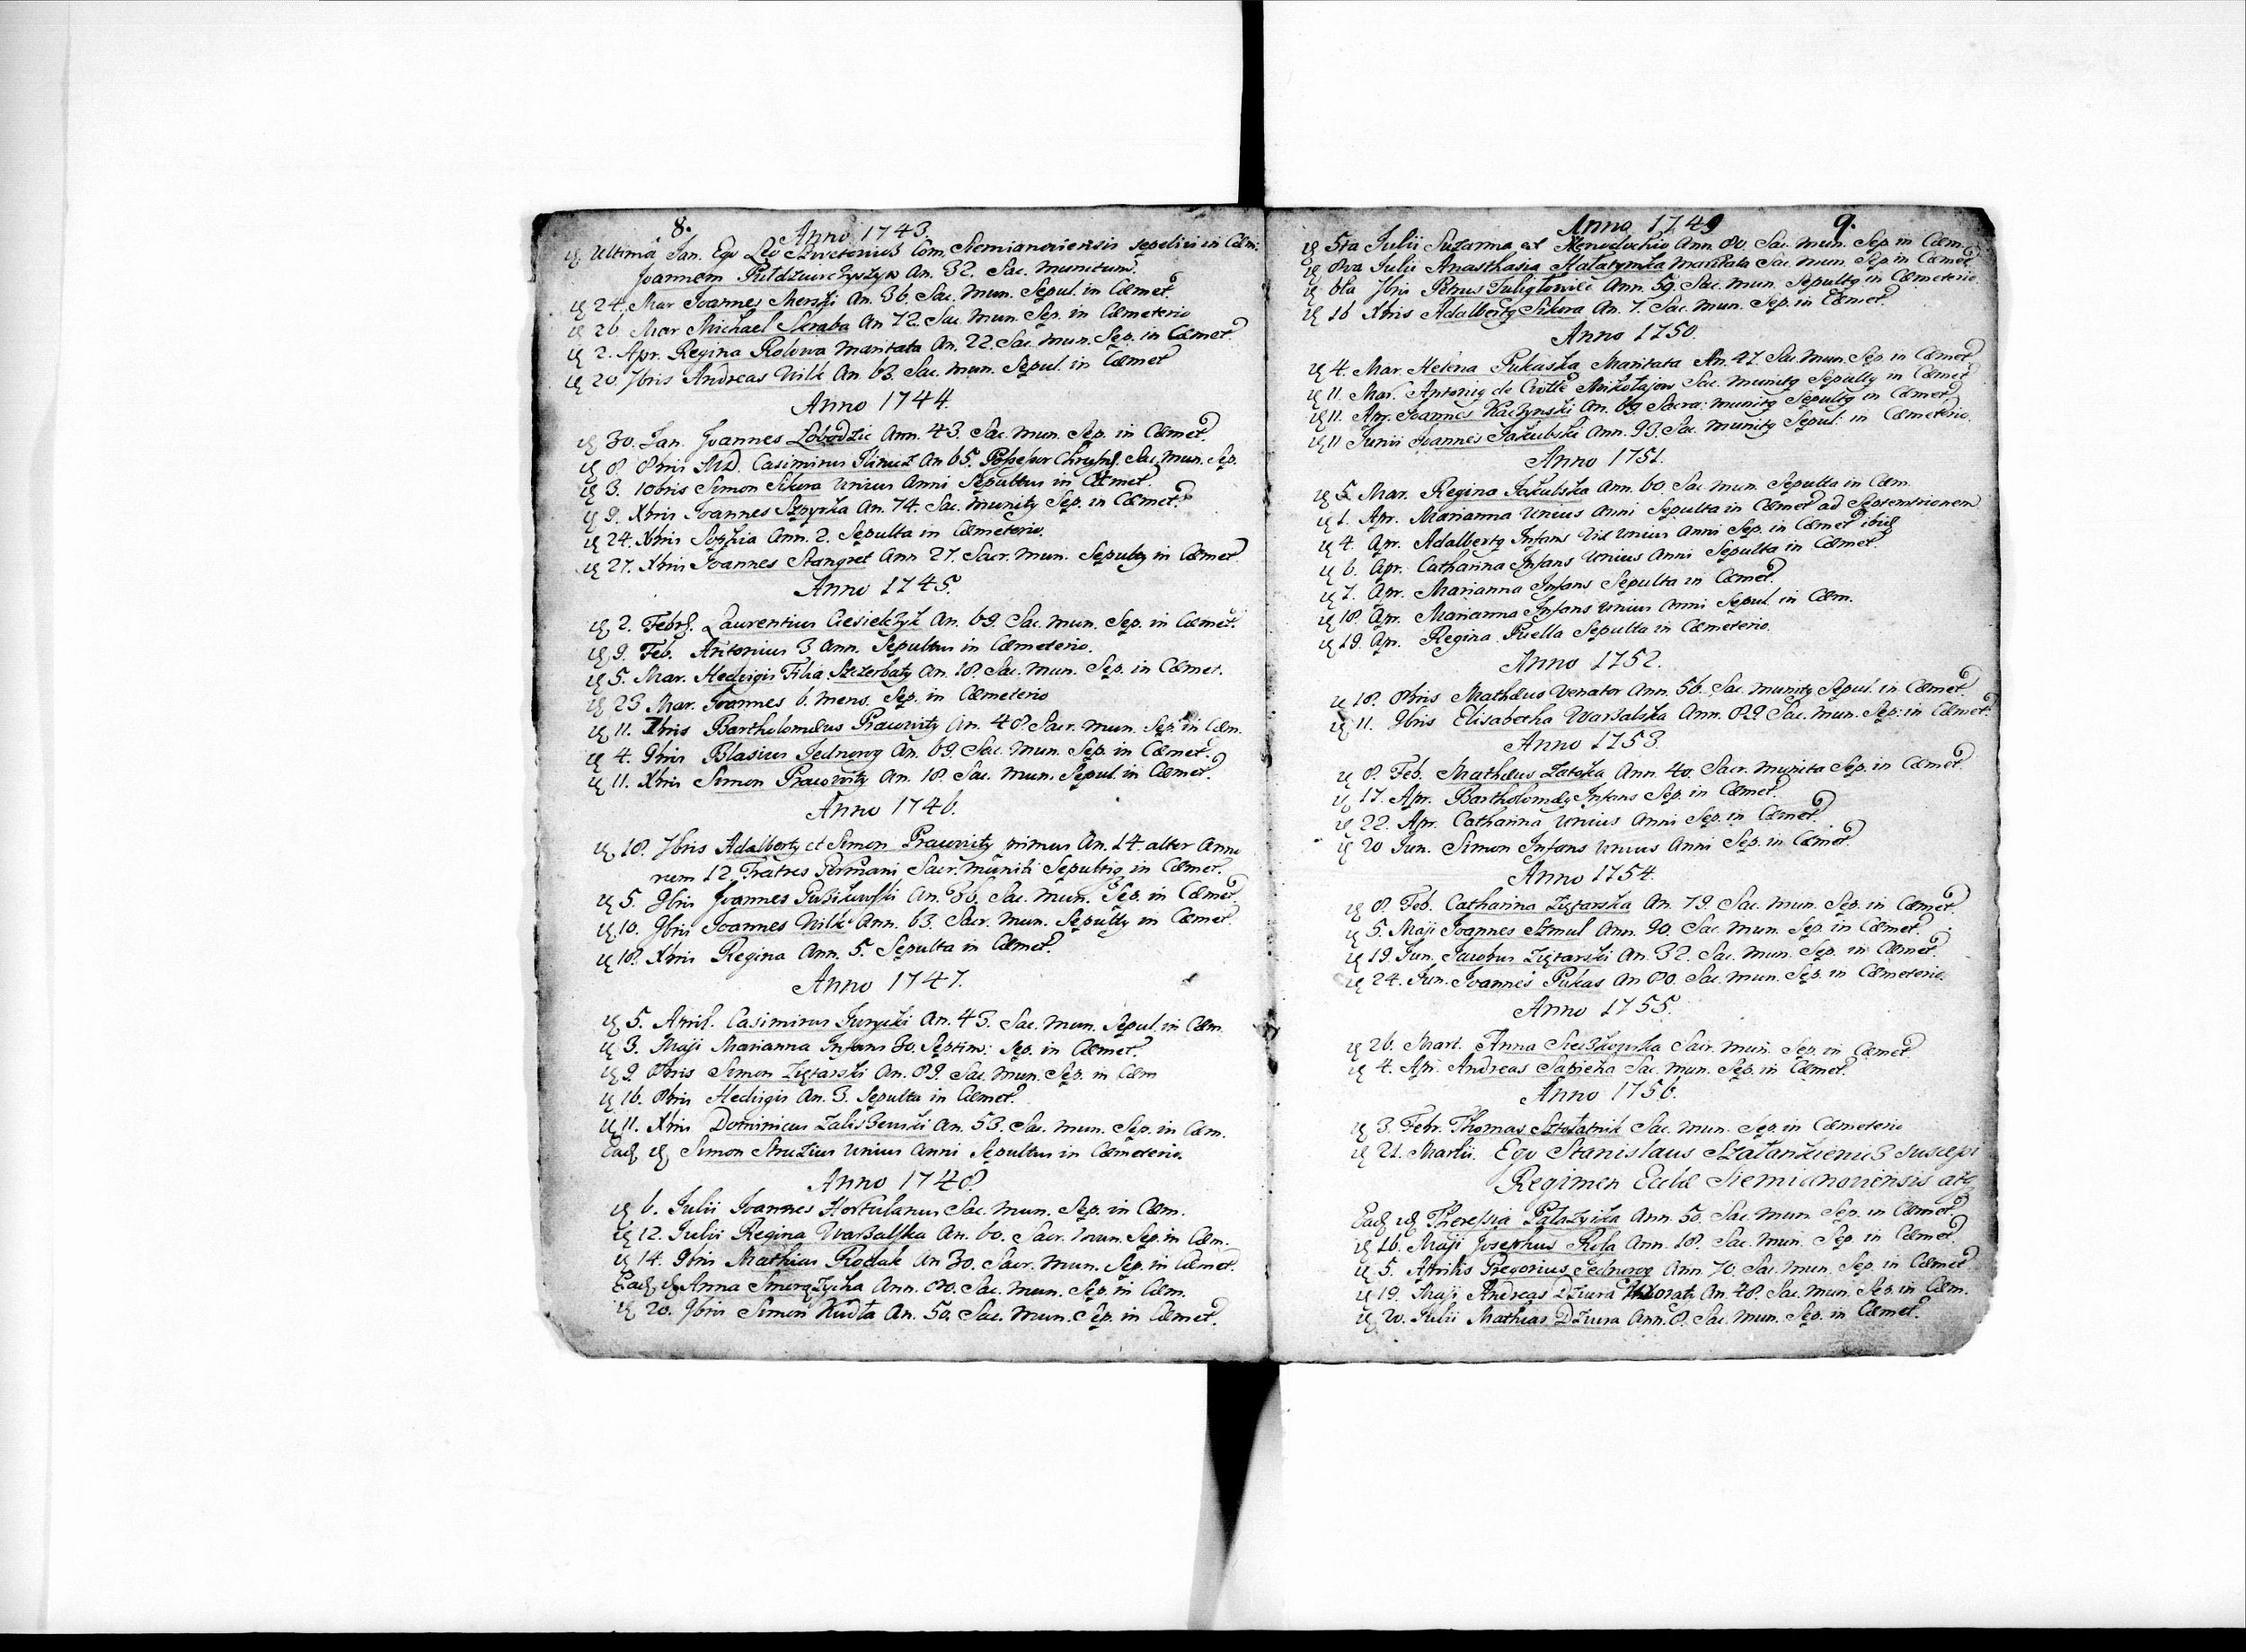 8.
Anno 1743.
Ultimâ Jan. Ego Leo Com. Siemianoviensis sepelivi in Cæm:
Joannem An. 32. Sac. munitum.
24. Mar Joannes An. 36. Sac. Mun. Sepul. in Cæmet.
26 Mar Michael Skraba An 72. Sac. Mun. Sep. in Cæmeterio
2. Apr. Regina Rolowa Maritata An. 22. Sac. Mun. Sep. in Cæmet.
20. Andreas Wilk An. 63. Sac. Mun. Sepul. in Cæmet
Anno 1744.
30. Jan. Joannes Lobodzic Ann. 43. Sac. Mun. Sep. in Cæmet.
8 8bris M.D. Casimirus An 65. Sac. Mun. Sep.
3. 10bris Simon Sikora Unius Anni Sepultus in Cæmet.
9. Xbris Joannes An. 74. Sac. Munitg Sep. in Cæmet.
24. Xbris Sophia Ann. 2. Sepulta in Cæmeterio.
27. Xbris Joannes Stangret Ann 27. Sacr. Mun. Sepultg in Cæmet
Anno 1745.
2. Febr. Laurentius Ciesielczyk An. 69. Sac. Mun. Sep. in Cæmet.
9. Feb. Antonius 3 Ann. Sepultus in Cæmeterio.
5. Mar. Hedvigis Filia Szczerbaty An. 18. Sac. Mun. Sep. in Cæmet.
23 Mar. Joannes 6. Mens. Sep. in Cæmeterio
11. 7bris Bartholomæus Pracovity An. 48. Sacr. Mun. Sep. in Cæm.
4. 9bris Blasius Jednorog An. 69. Sac. Mun. Sep. in Cæmet.
11. Xbris Simon Pracovity An. 18. Sac. Mun. Sepul. in Cæmet.
Anno 1746.
18. Adalbertg et Simon Pracovity primus An. 14. alter Anno
rum 12. Fratres Germani Sacr. muniti Sepultig in Cæmet.
5. 9bris Joannes An. 36. Sac. Mun. Sep. in Cæmet.
10. 9bris Joannes Wilk Ann. 63. Sacr. Mun. Sepultg in Cæmet.
18. Xbris Regina Ann. 5. Sepulta in Cæmet.
Anno 1747.
5. April. Casimirus Turycki An. 43. Sac. Mun. Sepul. in Cæm.
3. Maji Marianna Infans 30. Septim: Sep. in Cæmet.
9. 8bris Simon Zigtarski An. 89. Sac. Mun. Sep. in Cæm
16. 8bris Hedvigis An. 3. Sepulta in Cæmet.
11. Xbris Dominicus An. 53. Sac. Mun. Sep. in Cæm.
Ead Simon Struzius Unius Anni Sepultus in Cæmeterio.
Anno 1748.
6. Julii Joannes Hortulanus Sac. Mun. Sep. in Cæm.
12. Julii Regina Warßalska An. 60. Sacr. Mun. Sep. in Cæm.
14. 9bris Mathias Rodak An 30. Sacr. Mun. Sep. in Cæmet.
Ead Anna Ann. 80. Sac. Mun. Sep. in Cæm.
20. 9bris Simon Kudła An. 50. Sac. Mun. Sep. in Cæmet.
Anno 1749 9.
5ta Julii Suzanna ex Xenodochio Ann. 80. Sac. Mun. Sep. in Cæm.
8va Julii Anasthasia Maritata Sac. Mun. Sep. in Cæmet.
6ta Petrus Ann. 59. Sac. Mun. Sepultg in Cæmeterio.
16 Xbris Adalbertg Sikora An. 7. Sac. Mun. Sep. in Cæmet.
Anno 1750.
4. Mar. Helena Pukaska Maritata An. 47. Sac. Mun. Sep. in Cæmet
11. Mar. Antonig de Mikołajow Sac. munitg Sepultg in Cæmet
11. Apr. Joannes Kaczynski An. 69 Sacra: munitg Sepultg in Cæmet.
11 Junii Joannes Jakubski Ann. 93. Sac. Munitg Sepul: in Cæmeterio.
Anno 1751.
5 Mar. Regina Jakubska Ann. 60. Sac. Mun. Sepulta in Cæm.
1. Apr. Marianna Unius Anni Sepulta in Cæmet ad Septemtrionem
4. Apr. Adalbertg Infans Vix Unius Anni Sep. in Cæmet ibid
6. Apr. Catharina Infans Unius Anni Sepulta in Cæmet.
7. Apr. Marianna Infans Sepulta in Cæmet.
18. Apr. Marianna Infans Unius Anni Sepul. in Cæm.
19. Apr. Regina Puella Sepulta in Cæmeterio.
Anno 1752.
18. 8bris Mathæus Venator Ann. 56. Sac. Munitg Sepul. in Cæmet.
11. 9bris Elisabetha Warßalska Ann. 89 Sac. Mun. Sep: in Cæmet:
Anno 1753
8. Feb. Mathæus Ann. 40. Sacr. Munita Sep. in Cæmet
17. Apr. Bartholomæg Infans Sep. in Cæmet.
22. Apr. Catharina Unius Anni Sep. in Cæmet.
20 Jun. Simon Infans Unius Anni Sep. in Cæmet.
Anno 1754.
8. Feb. Catharina Zigtarska An. 79. Sac. Mun. Sep. in Cæmet.
5. Maji Joannes Szmul Ann. 90. Sac. Mun. Sep. in Cæmet.
19. Jun. Jacobus Zigtarski An. 32. Sac. Mun. Sep. in Cæmet.
24. Jun. Joannes Pukas An 80. Sac. Mun. Sep. in Cæmeterio.
Anno 1755.
26. Mart. Anna Sacr. Mun. Sep. in Cæmet.
4. Apr. Andreas Sapieha Sac. Mun. Sep. in Cæmet.
Anno 1756.
3. Febr. Thomas Sac. Mun. Sep. in Cæmeterio
21. Martii. Ego Stanislaus suscepi
Regimen Eccl&aelig; Siemianoviensis atq
Ead Theressia Ann. 50. Sac. Mun. Sep. in Cæmet.
16. Maji Josephus Rola Ann. 18. Sac. Mun. Sep in Cæmet
5. Aprilis Gregorius Jednorog Ann. 70. Sac. Mun. Sep. in Cæmet
19. Maji Andreas Dziura Uxoratg An. 48. Sac. Mun. Sep. in Cæm.
20. Julii Mathias Dziura Ann. 8. Sac. Mun. Sep. in Cæmet.